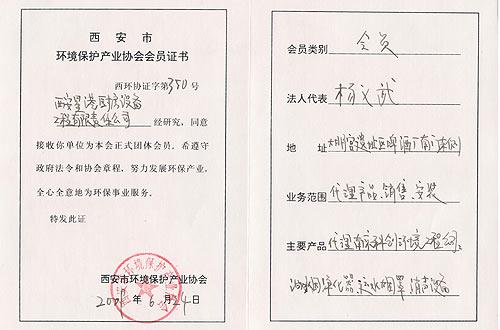 西安市
环境保护产业协会会员证书
西环协证字第350号
西安星港厨房设备
工程有限责任公司 经研究，同意
接收你单位为本会正式团体会员。希遵守
政府法令和协会章程，努力发展环保产业，
全心全意地为环保事业服务。
特发此证
西安市环境保护产业协会
西安市环境保护产业协会
2007年6月24日
会员类别 会员
法人代表 杨文武
地址 大明宫遗址区啤酒厂南
业务范围 代理产品、销售、安装
主要产品 代理南京科创环境工程公司
油烟净化器、运水烟罩、消声设备